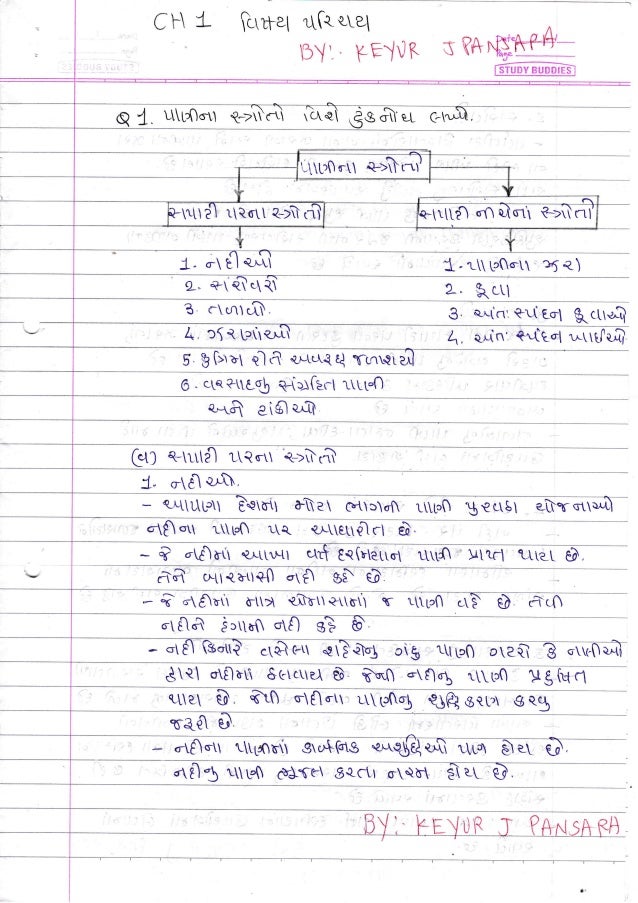 CH 1 વિષય પરિચય
BY:- KEYUR J PANSARA
Date
Page
STUDY BUDDIES
Q 1. પાણીના સ્ત્રોતો વિશે ટુંકનોંધ લખો.
પાણીના સ્ત્રોતો
સપાટી પરના સ્ત્રોતો
સપાટી નીચેનાં સ્ત્રોતો
1. નદીઓ
2. સરોવરો
3. તળાવો
4. ઝરણાંઓ
5. કૃત્રિમ રીતે અવરધ્ધ જળાશયો
6. વરસાદનુ સંગ્રહિત પાણી
અને ટાંકીઓ.
1. પાણીના ઝરા
2. કૂવા
3. અંતઃસ્પંદન કૂવાઓ
4. અંતઃસ્પંદન ખાઈઓ
(બ) સપાટી પરના સ્ત્રોતો
1. નદીઓ.
- આપણા દેશના મોટા ભાગની પાણી પુરવઠા યોજનાઓ
નદીના પાણી પર આધારીત છે.
- જે નદીમાં આખા વર્ષ દરમિયાન પાણી પ્રાપ્ત થાય છે.
તેને બારમાસી નદી કહે છે.
- જે નદીમાં માત્ર ચોમાસામાં જ પાણી વહે છે. તેવી
નદીને હંગામી નદી કહે છે.
- નદી કિનારે વસેલા શહેરોનુ ગંદુ પાણી ગટરો કે નાલીઓ
દ્વારા નદીમાં ઠલવાય છે જેથી નદીનુ પાણી પ્રદુષિત
થાય છે. જેથી નદીના પાણીનુ શુદ્ધિકરણ કરવુ
જરૂરી છે.
- નદીના પાણીમાં કાર્બનિક અશુદ્ધિઓ પણ હોય છે.
- નદીનુ પાણી ભૂજલ કરતા નરમ હોય છે.
BY:- KEYUR J PANSARA